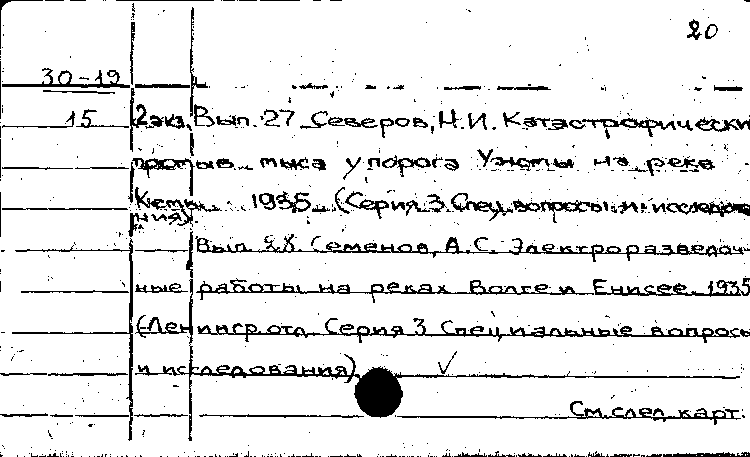 20
30-19
15 2экз. Вып. 27 Северов, Н.И. Катастрофически
прорыв мыса у порога Ужмы на реке
Кеть. 1935 (Серия 3 Спец. вопросы и исследова
ния)
Вып. 28. Семенов, А.С. Электроразведоч-
ные работы на реках Волге и Енисее. 1935
(Ленингр. отд. Серия 3 Специальные вопросы
и исследования)
См. след. карт.